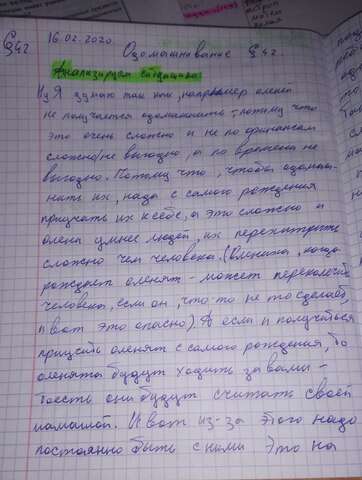 §42 16.02.2020
Одомашнивание §42
Анализируем ситуацию:
1) Я думаю так как, например оленей
не получается одомашнить: потому что
это очень сложно и не по финансам
сложно/не выгодно, а по времени не
выгодно. Потому что, чтобы одомаш-
нить их, надо с самого рождения
приучать их к себе, а это сложно и
олени умнее людей, их перехитрить
сложно чем человека. (Олениха, когда
рождает оленят - может переколоть
человека, если он, что-то не то сделает,
и вот это опасно). А если и получиться
приучить оленят с самого рождения, то
оленята будут ходить за вами -
тоесть они будут считать своей
мамашой. И вот из-за этого надо
постоянно быть с ними. Это на